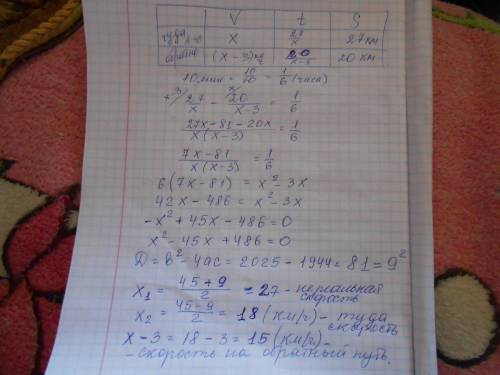 V t S
туда x 27/x 27 км
обратно (x-3) км/ч 20/x-3 20 км
10 мин = 10/60 = 1/6 (часа)
27/x - 20/x-3 = 1/6
27x-81-20x/x(x-3) = 1/6
7x-81/x(x-3) = 1/6
6(7x-81) = x²-3x
42x-486 = x²-3x
-x²+45x-486=0
x²-45x+486=0
D=b²-4ac=2025-1944=81=9²
x₁ = 45+9/2 = 27 - нереальная
скорость
x₂ = 45-9/2 = 18 (км/ч) - туда
скорость
x-3=18-3=15 (км/ч)-
-скорость на обратный путь.